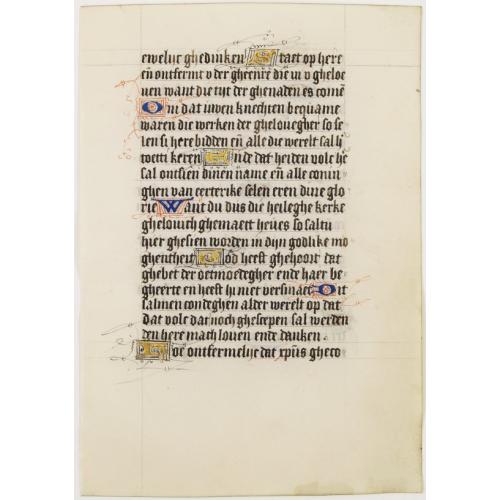 ewelijc ghedincken Staet op here
en̄ ontfermt v der gheenre die in v gheloe
uen want die tijt der ghenaden es comē
Om dat uwen knechten bequame
waren die werken der ghelouegher so se
len si here bidden en̄ alle die werelt sal
keren Ende dat heiden volc he
sal ontsien dinen name en̄ alle conin
ghen van eerterike selen eren dine glo
rie Want du dus die heileghe kerke
ghelouich ghemaect heues so saltu
hier ghesien worden in dijn godlike mo
ghentheit God heeft ghehoort dat
ghebet der oetmoedegher ende haer be
gheerte en heeft hi niet versmaet Dit
salmen condeghen alder werelt op dat
dat volc dat noch ghescepen sal werden
den here mach louen ende danken.
Hoe ontfermelijc dat xpūs gheco